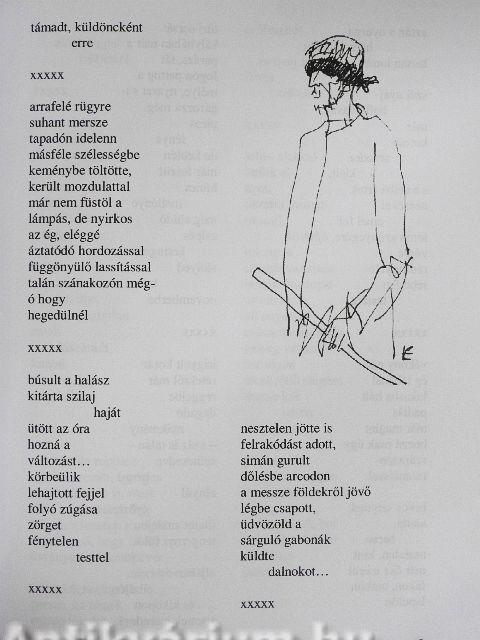 támadt, küldöncként
erre
xxxxx
arrafelé rügyre
suhant mersze
tapadón idelenn
másféle szélességbe
keménybe töltötte,
került mozdulattal
már nem füstöl a
lámpás, de nyirkos
az ég, eléggé
áztatódó hordozással
függönyülő lassítással
talán szánakozón még-
ó hogy
hegedülnél
xxxxx
búsult a halász
kitárta szilaj
haját
ütött az óra
hozná a
változást…
körbeülik
lehajtott fejjel
folyó zúgása
zörget
fénytelen
testtel
xxxxx
nesztelen jötte is
felrakódást adott,
simán gurult
dőlésbe arcodon
a messze földekről jövő
légbe csapott,
üdvözöld a
sárguló gabonák
küldte
dalnokot…
xxxxx
E
Antikvárium.hu